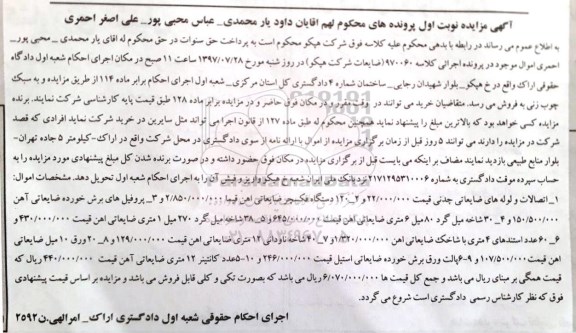 آگهی مزایده نوبت اول پرونده های محکوم لهم اقایان داود یار محمدی_ عباس محبی پور_ علی اصغر احمری
به اطلاع عموم می رساند در رابطه با بدهی محکوم علیه کلاسه فوق شرکت هپکو محکوم است به پرداخت حق سنوات در حق محکوم له اقای یار محمدی _ محبی پور_
احمری اموال موجود در پرونده اجرائی کلاسه ۹۷۰۰۶۰ (ضایعات شرکت هپکو) در روز شنبه مورخ ۱۳۹۷/۰۷/۲۸ ساعت ۱۱ صبح در مکان اجرای احکام شعبه اول دادگاه
حقوقی اراک واقع در خ هپکو_ بلوار شهیدان رجایی_ ساختمان شماره ۴ دادگستری کل استان مرکزی_ شعبه اول اجرای احکام برابر ماده ۱۱۴ از طریق مزایده و به سبک
چوب زنی به فروش می رسد. متقاضیان خرید می توانند در وقت مقرر و در مکان فوق حاضر و در مزایده برابر ماده ۱۲۸ طبق قیمت پایه کارشناسی شرکت نمایند. برنده
مزایده کسی خواهد بود که بالاترین مبلغ را پیشنهاد نماید همچنین محکوم له طبق ماده ۱۲۷ از قانون اجرا می تواند مثل سایرین در خرید شرکت نماید افرادی که قصد
شرکت در مزایده را دارند می توانند ۵ روز قبل از زمان برگزاری مزایده از اموال با ارائه نامه از سوی دادگستری در محل شرکت واقع در اراک-کیلومتر ۵ جاده تهران-
بلوار منابع طبیعی بازدید نمایند مضاف براینکه می بایست قبل از برگزاری مزایده در مکان فوق حضور داشته و در صورت برنده شدن کل مبلغ پیشنهادی مورد مزایده را به
حساب سپرده موقت دادگستری به شماره ۲۱۷۱۲۹۵۳۱۰۰۰۶ نزد بانک ملی ایران شعبه خ هپکو واریز و فیش آن را به اجرای احکام شعبه اول تحویل دهد. مشخصات اموال:
۱_ اتصالات و لوله های ضایعاتی چدنی قیمت ۲۲/۰۰۰/۰۰۰ و ۲_ ۱۲۰ دستگاه فیکسچر ضایعاتی اهن قیمت ۲/۸۵۰/۰۰۰/۰۰۰ و ۳_ پروفیل های برش خورده ضایعاتی آهن
۱۵۰/۵۰۰/۰۰۰ و ۴_ ۳۰ شاخه میل گرد ۸۰ میل ۶ متری ضایعاتی آهن قیمت ۶۴۵/۰۰۰/۰۰۰ و ۵_ ۳۸ شاخه میل گرد ۲۷۰ میل ۱ متری ضایعاتی اهن قیمت ۴۳۰/۰۰۰/۰۰۰ و
۶_ ۶۰ عدد استندهای ۴ متری با شاخک ضایعاتی اهن ۱/۳۲۰/۰۰۰/۰۰۰ و ۷_ ۴ شاخه ناودانی ۱۲ متری ضایعاتی اهن قیمت ۱۲۹/۰۰۰/۰۰۰ و ۸_ ۲۰ ورق ۱۰ میل ضایعاتی
اهن قیمت ۱۰۷/۵۰۰/۰۰۰ و ۹-۶ پالت ورق برش خورده ضایعاتی استیل قیمت ۲۴۶/۰۰۰/۰۰۰ و ۱۰-۵ عدد کانتینر ۱۲ متری ضایعاتی آهن قیمت ۴۴۰/۰۰۰/۰۰۰ ریال که
قیمت همگی بر مبنای ریال می باشد و جمع کل قیمت ها ۶/۰۷۰/۰۰۰/۰۰۰ ریال می باشد که بصورت تکی و کلی قابل فروش می باشد و مزایده بر اساس قیمت پیشنهادی
فوق که نظر کارشناس رسمی دادگستری است شروع می گردد.
اجرای احکام حقوقی شعبه اول دادگستری اراک_ امرالهی.ن۲۵۹۲